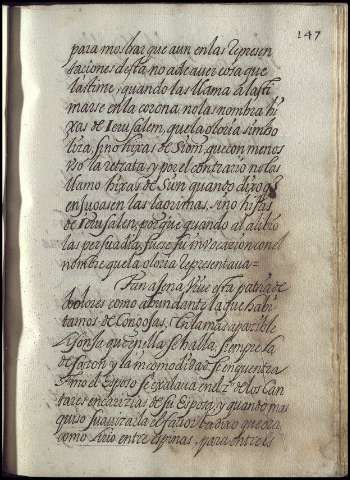 147
para mostrar que aun en las represen
taciones desta no a de aver cosa que
lastime, quando las llama a lasti
marse en la corona no las nombra hi
xas de Ierusalem, que la gloria simbo
liza, sino hixas de Sion, que con menos
la retrata, y por el contrario no las
llamo hixas de Sion quando dixo q
en sus las lagrimas, sino hijas
de Ierusalen, porque quando al alivio
las persuadia, fuese su invocazion con el
nombre que la gloria representava=
Tan asena vive esta patria de
dolores como abundante la que habi
tamos de Congojas, en la mas apacible
que en ella se halla, siempre la
de sazon y la incomodidad se enquentra
el Esposo se exalava en el de los Can
tares en carizias de su Esposa, y quando mas
quiso suavizarla el fabor la dixo que era
como lirio entre espinas,